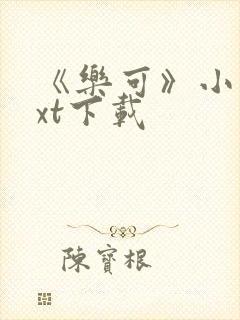 《樂可》小
xt下載
陳寶根